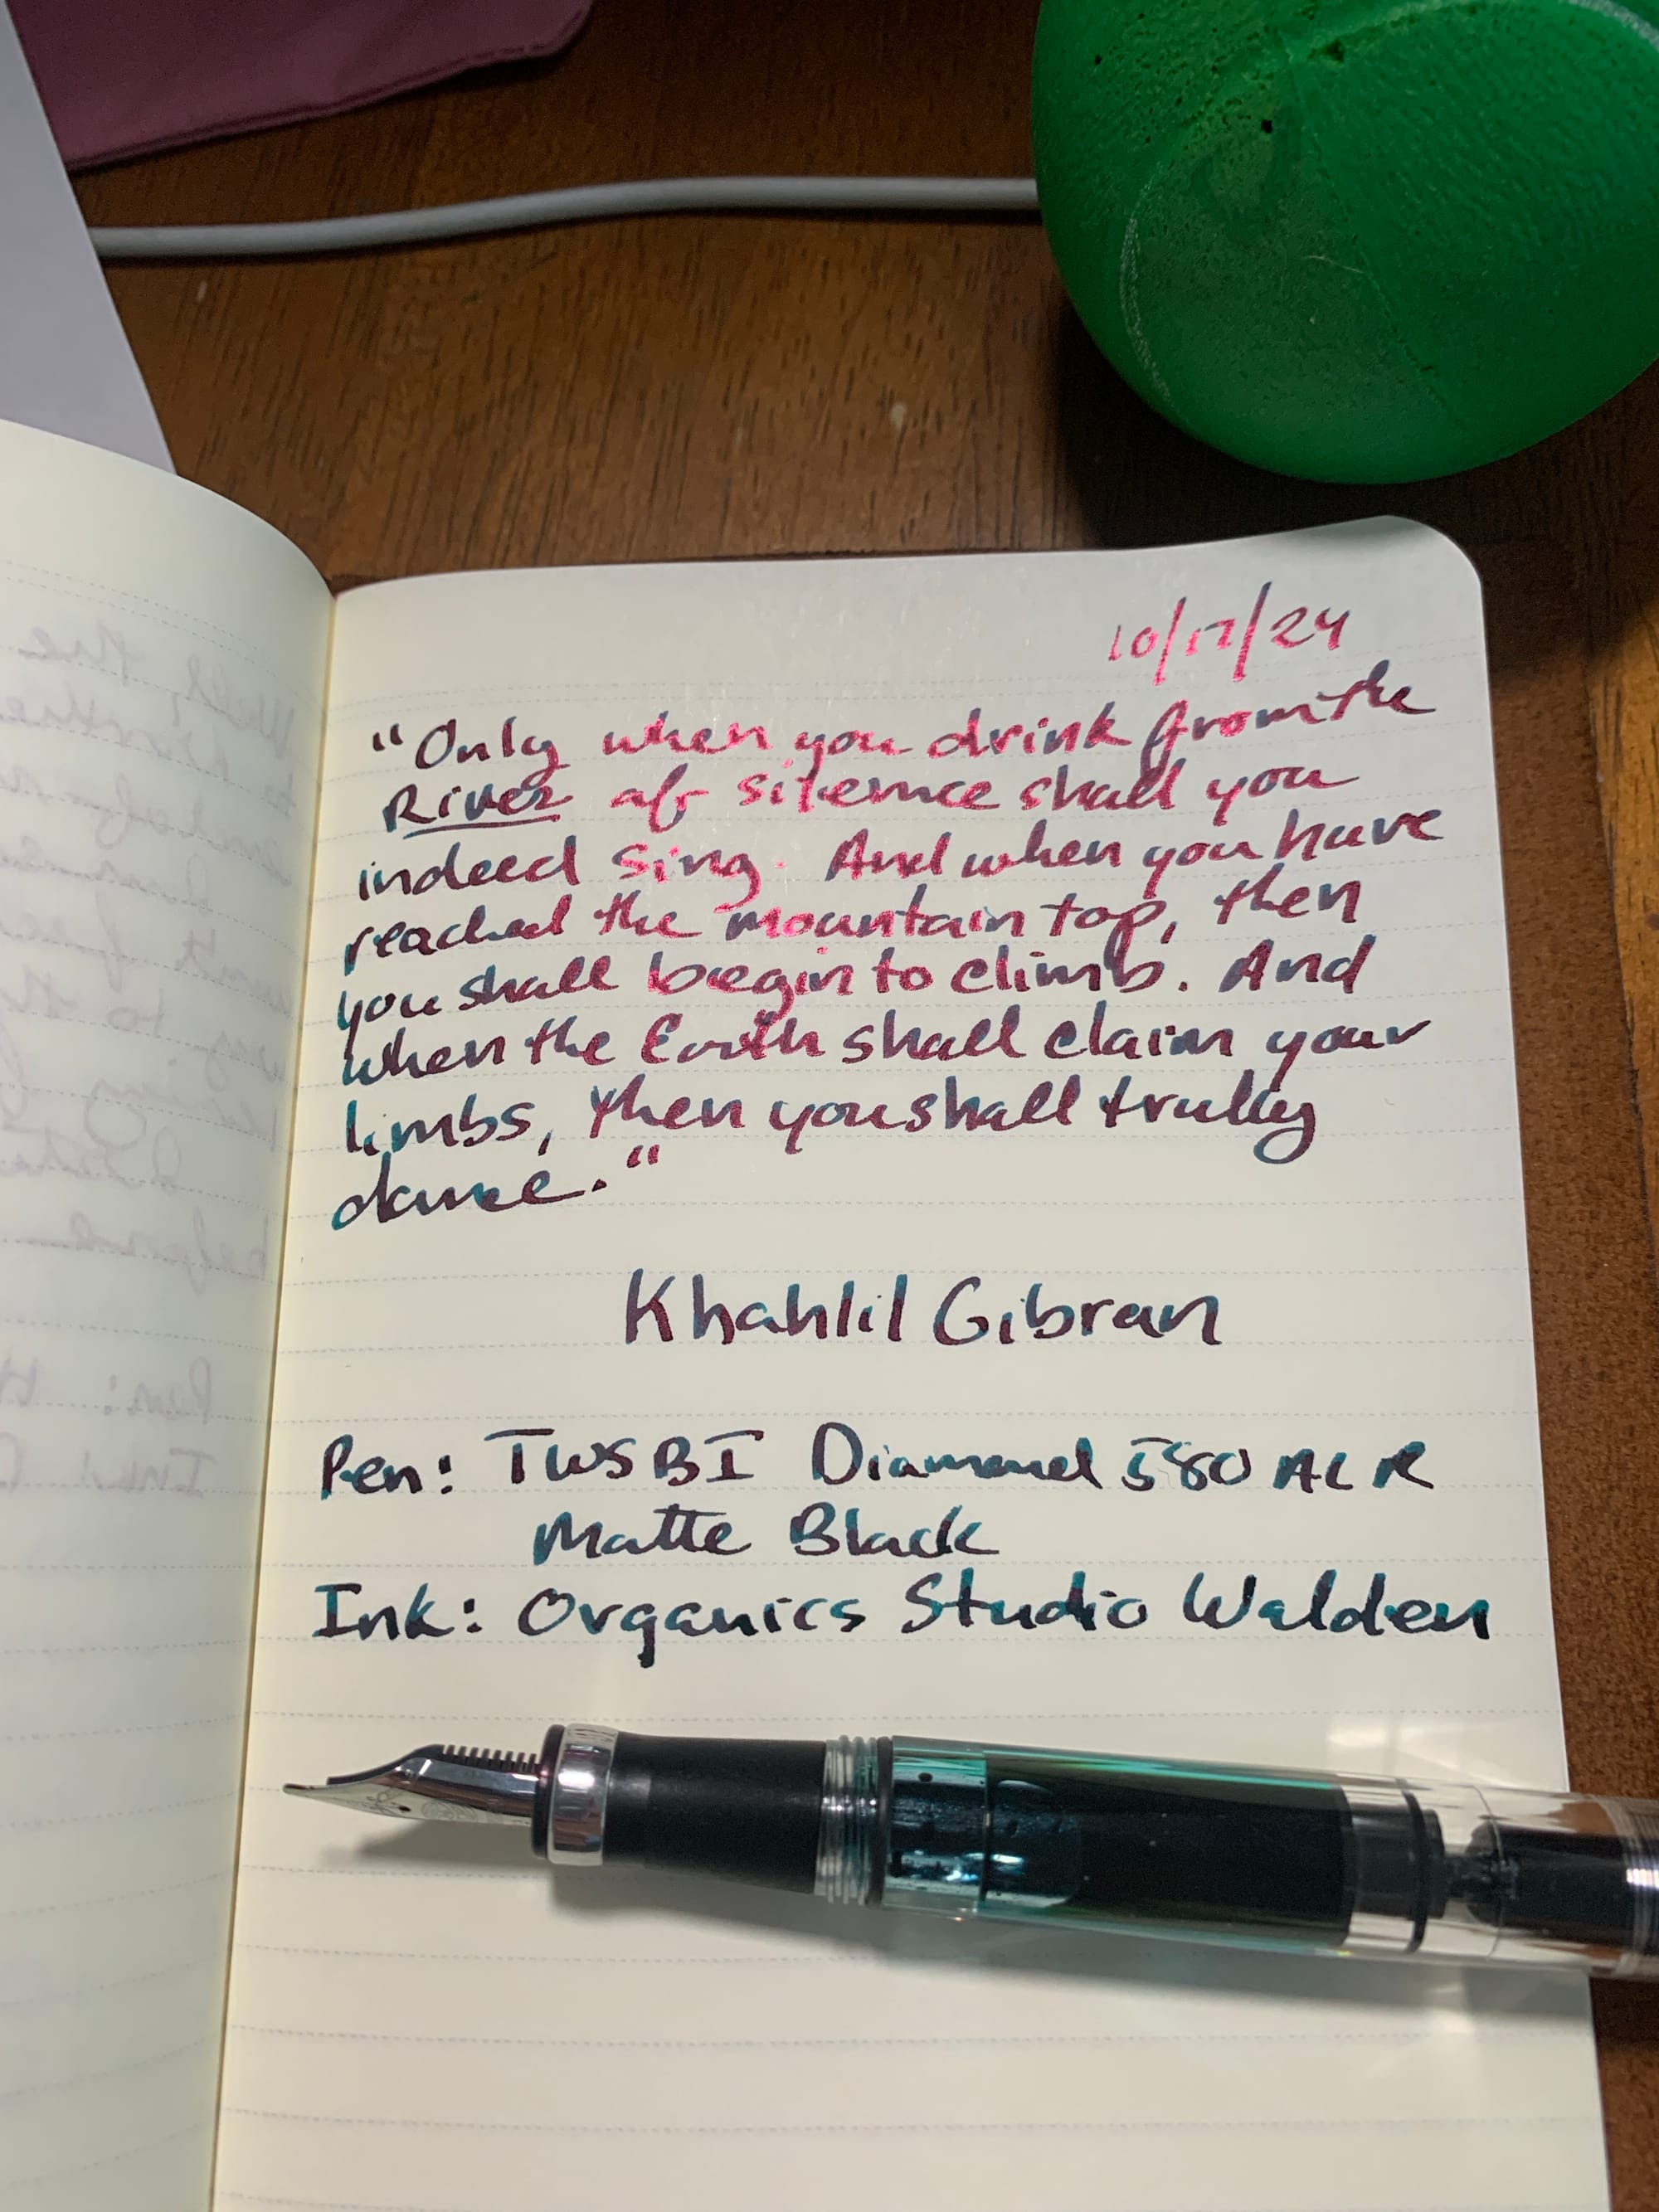 10/17/24
"Only when you drink from the
River of silence shall you
indeed sing. And when you have
reached the mountain top, then
you shall begin to climb. And
when the Earth shall claim your
limbs, then you shall truly
dance."
Khahlil Gibran
Pen: TWSBI Diamond 580 ALR
Matte Black
Ink: Organics Studio Walden